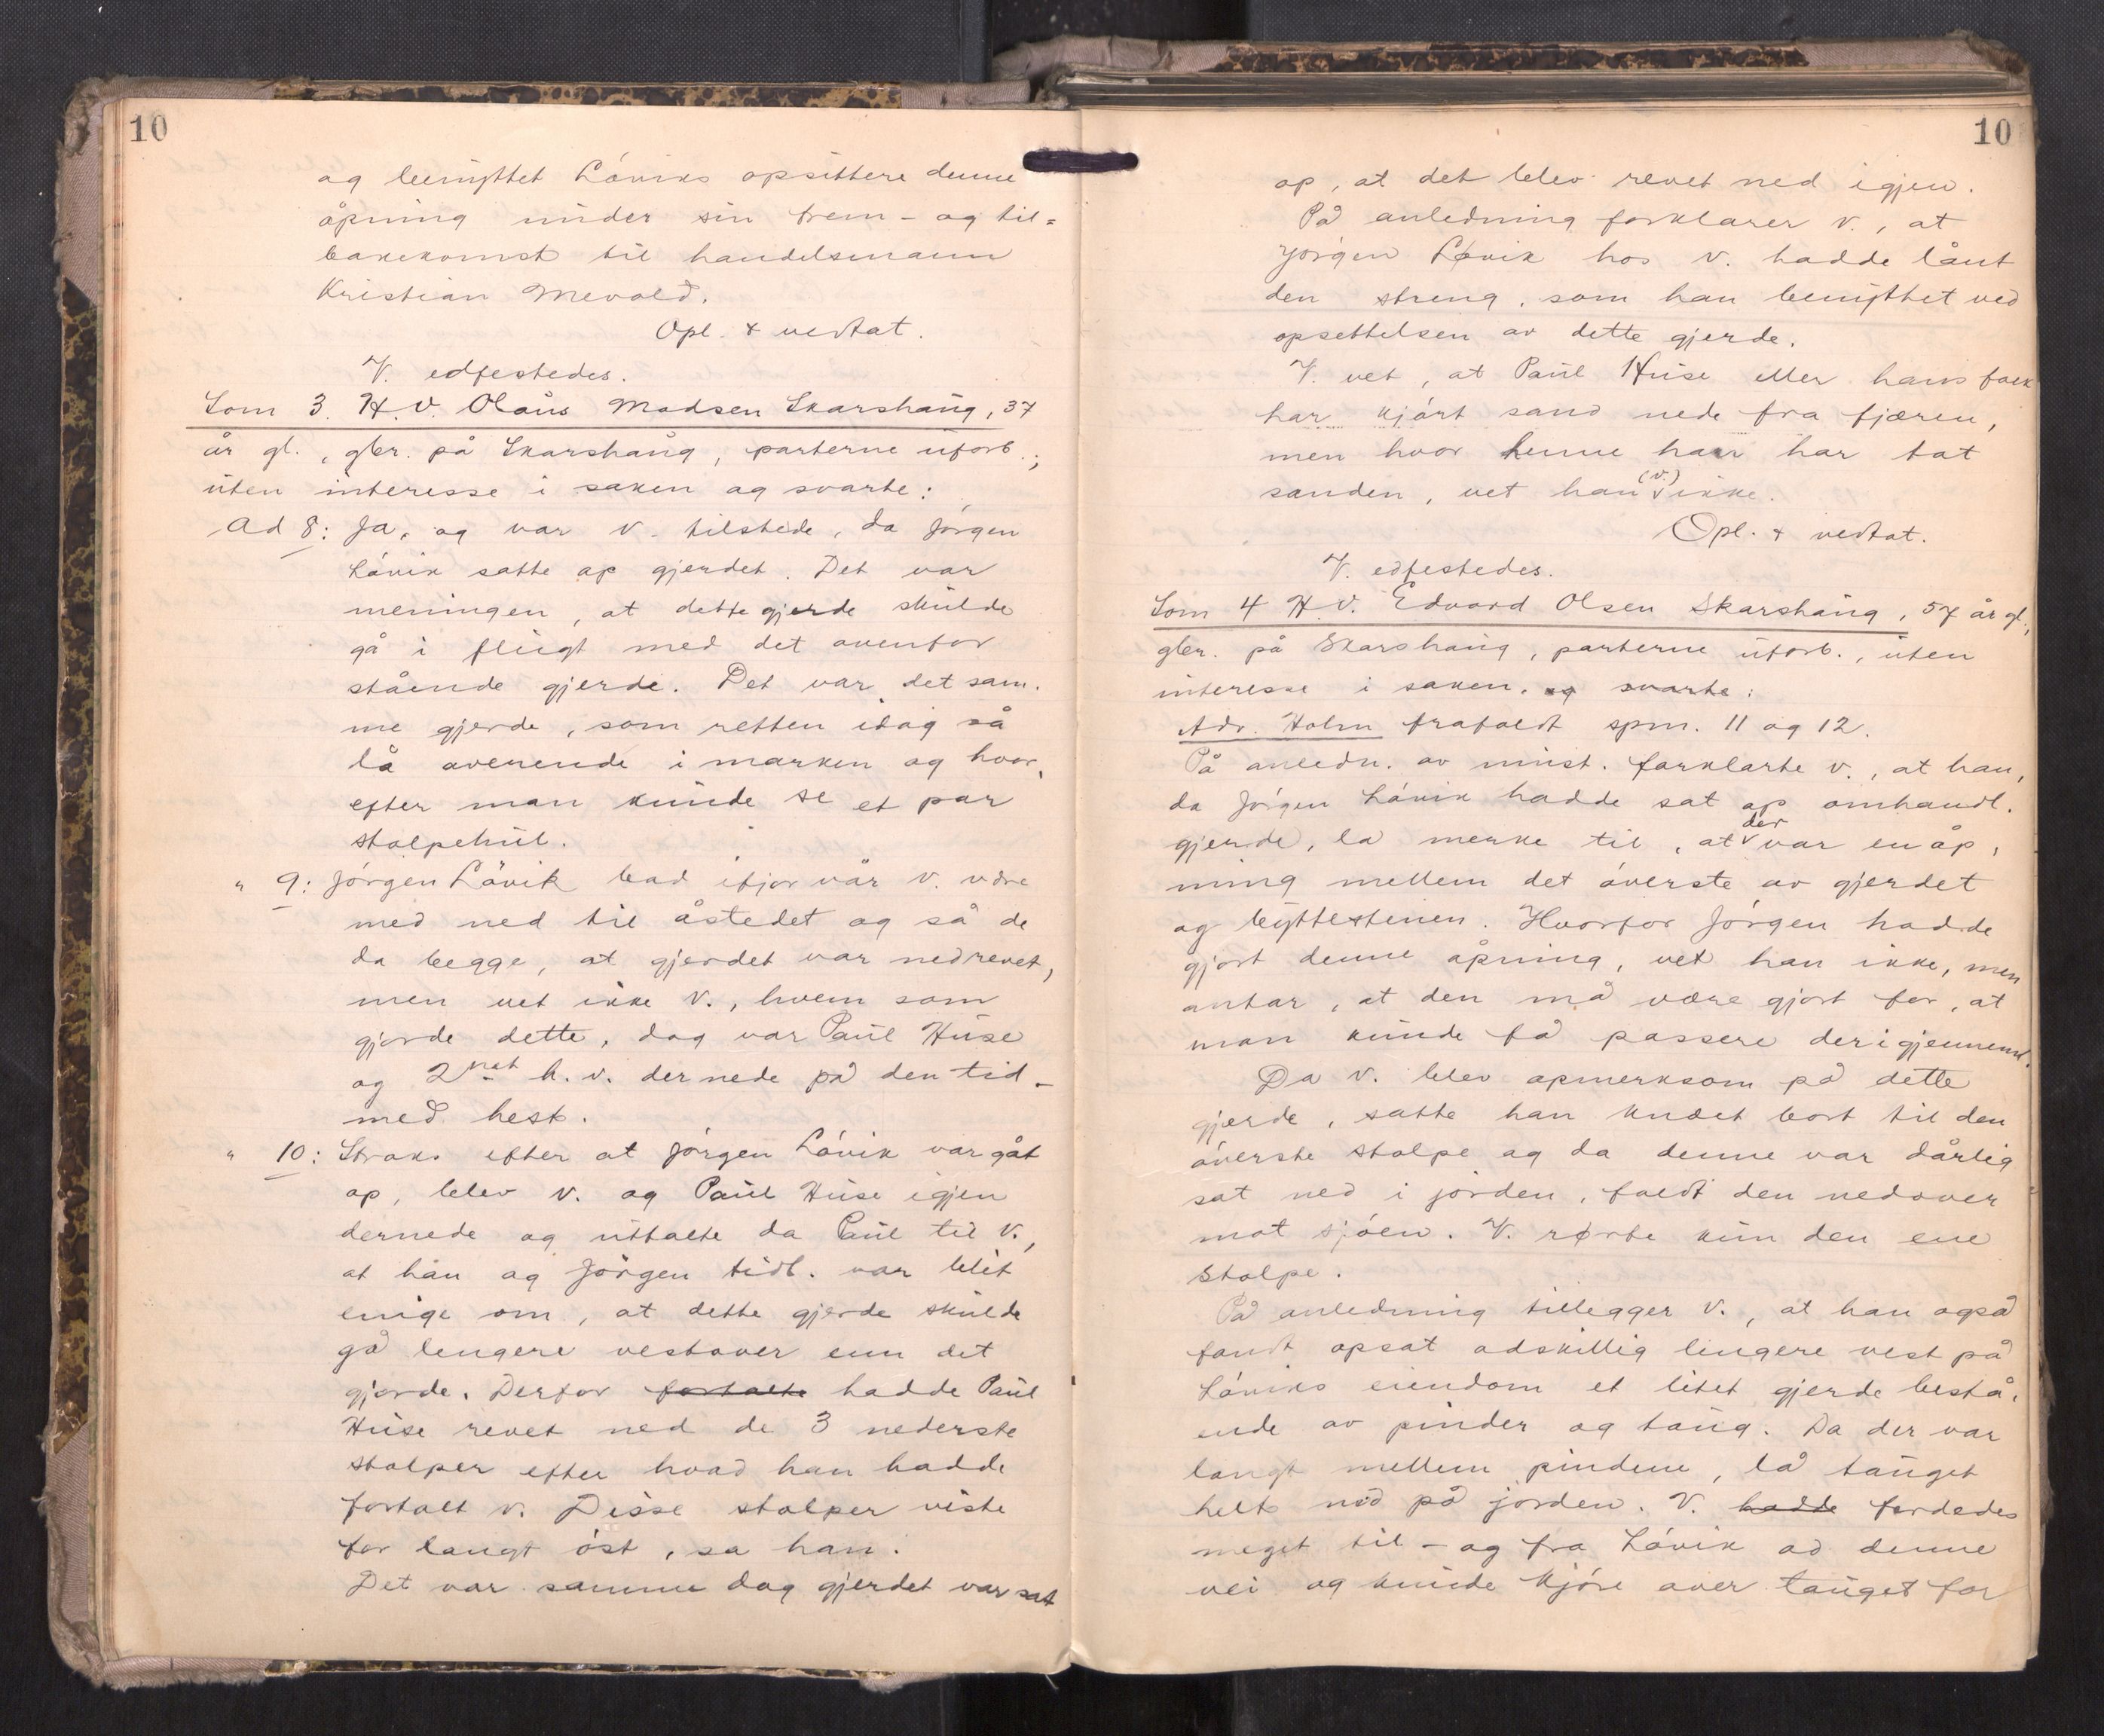 10
og benyttet Lóviks opsittere denne
åpning under sin frem- og til=
bakekomst til handelsmann
Kristian Mevold.
Opl. & vedtat.
V. edfestedes.
Som 3. H.V. Olaus Madsen Skarshaug, 37
år gl., gbr. på Skarshaug, parterne uforb.,
uten interesse i saken og svarte:
Ad 8: Ja, og var V. tilstede, da Jórgen
Lóvik satte op gjerdet. Det var
meningen, at dette gjerde skulde
gå i flugt med det ovenfor
stående gjerde. Det var det sam-
me gjerde, som retten idag så
lå overende i marken og hvor-
efter man kunde se et par
stolpehul.
" 9: Jórgen Lövik bad ifjor vår V. være
med ned til åstedet og så de
da begge, at gjerdet var nedrevet,
men vet ikke V., hvem som
gjorde dette, dog var Paul Huse
og 2net h.v. dernede på den tid -
med hest.
" 10: Straks efter at Jórgen Lóvik var gåt
op, blev V. og Paul Huse igjen
dernede og uttalte da Paul til V.,
at han og Jórgen tidl. var blit
enige om, at dette gjerde skulde
gå lengere vestover enn det
gjorde. Derfor fortalte hadde Paul
Huse revet ned de 3 nederste
stolper efter hvad han hadde
fortalt V. Disse stolper viste
for langt óst, sa han.
Det var samme dag gjerdet var sat
10
op, at det blev revet ned igjen.
På anledning forklarer V., at
Jórgen Løvik hos V. hadde lånt
den streng, som han benyttet ved
opsettelsen av dette gjerde.
V. vet, at Paul Huse eller hans folk
har kjórt sand nede fra fjæren,
men hvor henne han har tat
sanden, vet han (V.) ikke.
Opl. & vedtat.
V. edfestedes.
Som 4 H.V. Edvard Olsen Skarshaug, 57 år gl.,
gbr. på Skarshaug, parterne uforb., uten
interesse i saken, og svarte:
Adv. Holm frafaldt spm. 11 og 12.
På anledn. av mist. forklarte V., at han,
da Jórgen Lóvik hadde sat op omhandl.
gjerde, la merke til, at der var en åp-
ning mellem det óverste av gjerdet
og byttestenen. Hvorfor Jórgen hadde
gjort denne åpning, vet han ikke, men
antar, at den må være gjort for, at
man kunde få passere derigjennem.
Da V. blev opmerksom på dette
gjerde, satte han knæet bort til den
óverste stolpe og da denne var dårlig
sat ned i jorden, faldt den nedover
mot sjóen. V. rørte kun den ene
stolpe.
På anledning tillegger V., at han også
fandt opsat adskillig lengere vest på
Lóviks eiendom et litet gjerde bestå-
ende av pinder og taug. Da der var
langt mellem pindene, lå tauget
helt ned på jorden. V. hadde ferdedes
meget til - og fra Lóvik ad denne
vei og kunde kjóre over tauget for